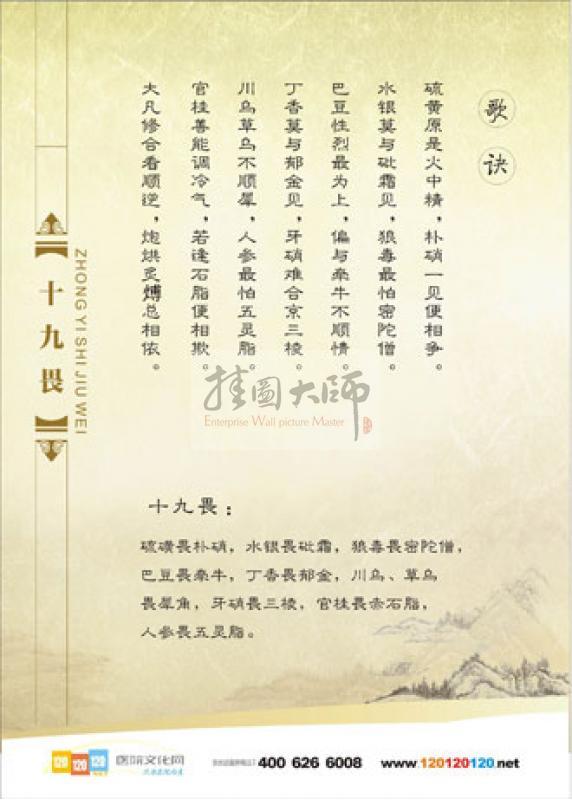 歌诀
硫黄原是火中精，朴硝一见便相争。
水银莫与砒霜见，狼毒最怕密陀僧。
巴豆性烈最为上，偏与牵牛不顺情。
丁香莫与郁金见，牙硝难合京三棱。
川乌草乌不顺犀，人参最怕五灵脂。
官桂善能调冷气，若逢石脂便相欺。
大凡修合看顺逆，炮烘炙煿总相依。
十九畏
ZHONG YI SHI JIU WEI
挂图大师
Enterprise Wall picture Master
十九畏：
硫磺畏朴硝，水银畏砒霜，狼毒畏密陀僧，
巴豆畏牵牛，丁香畏郁金，川乌、草乌
畏犀角，牙硝畏三棱，官桂畏赤石脂，
人参畏五灵脂。
120 120 120
医院文化网
400 626 6008
www.120120120.net